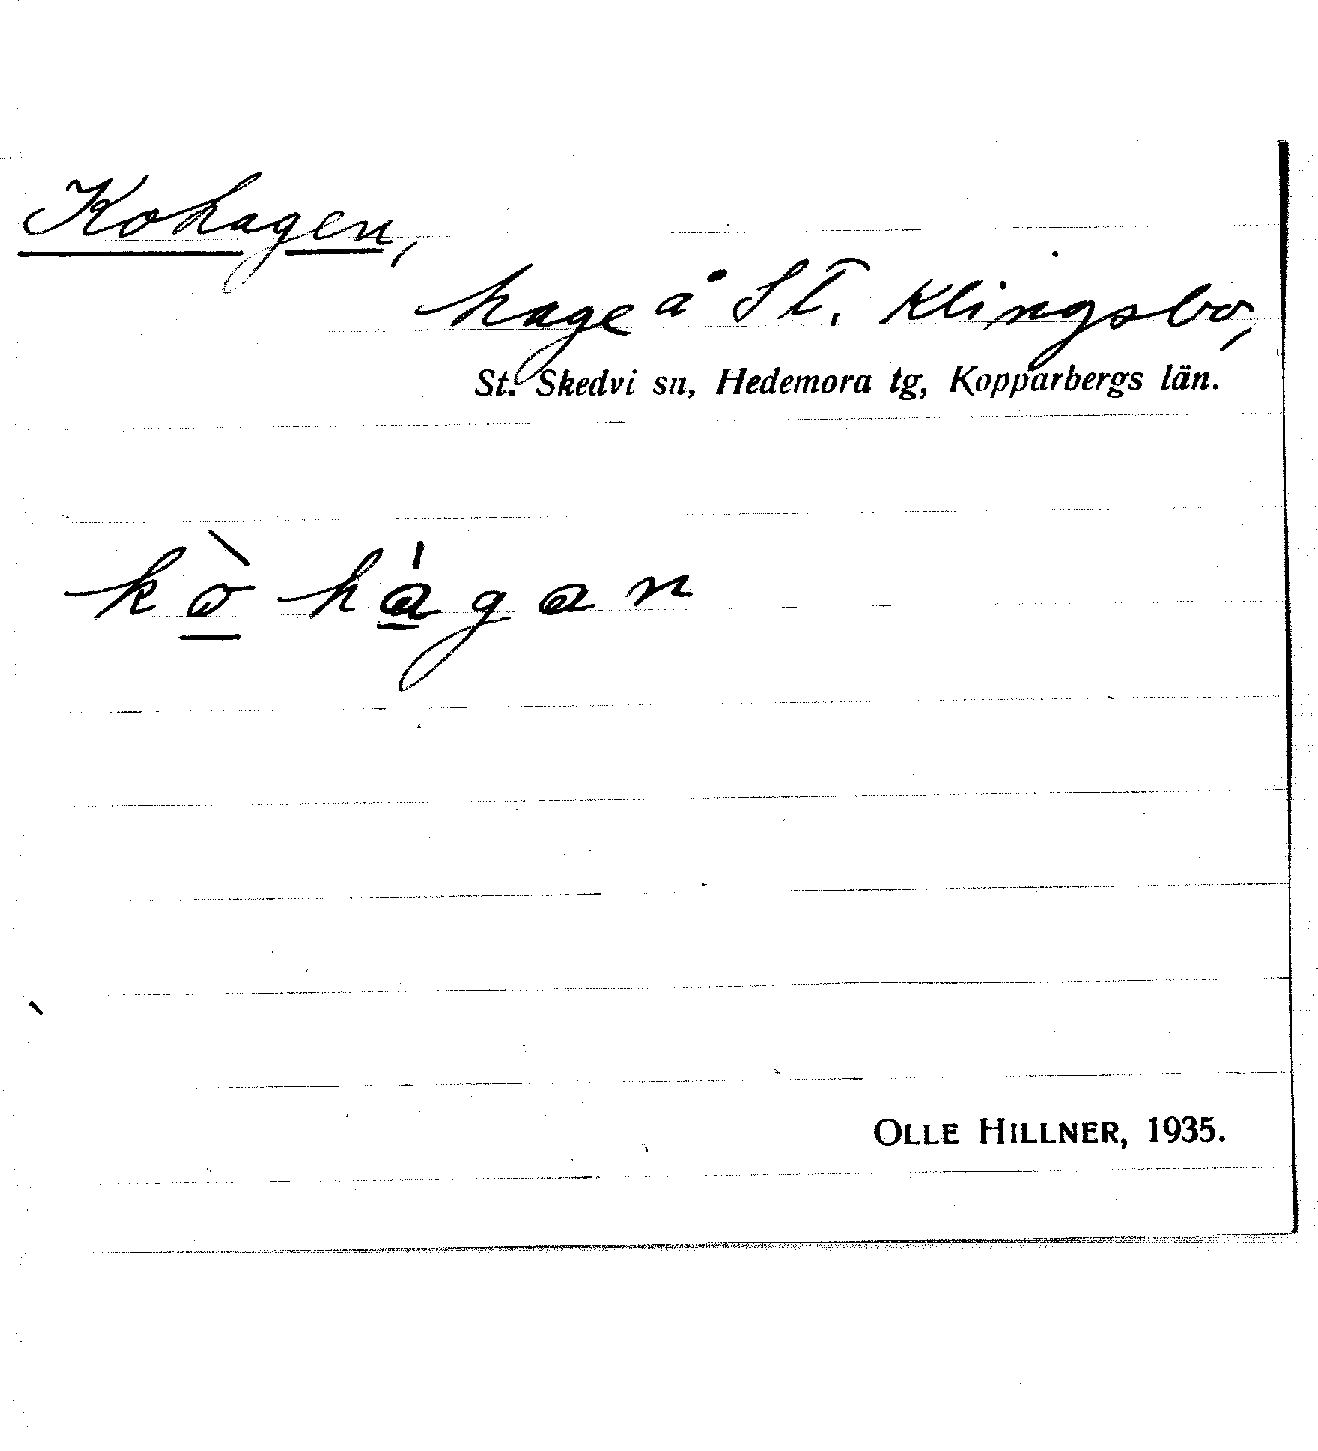 Kohagen,
hage å St. Klingsbo,
St. Skedvi sn, Hedemora tg, Kopparbergs län.
kò̱ há̱gan
OLLE HILLNER, 1935.